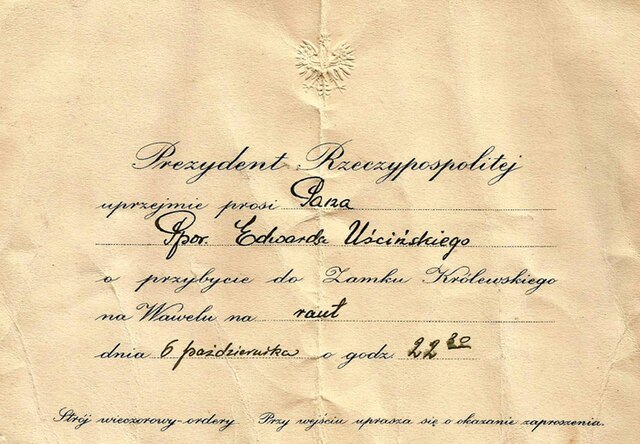 Prezydent Rzeczypospolitej
uprzejmie prosi Pana
Ppor. Edwarda Uścińskiego
o przybycie do Zamku Królewskiego
na Wawelu na raut
dnia 6 października o godz 22 30
Strój wieczorowy-ordery Przy wyjściu uprasza się o okazanie zaproszenia.